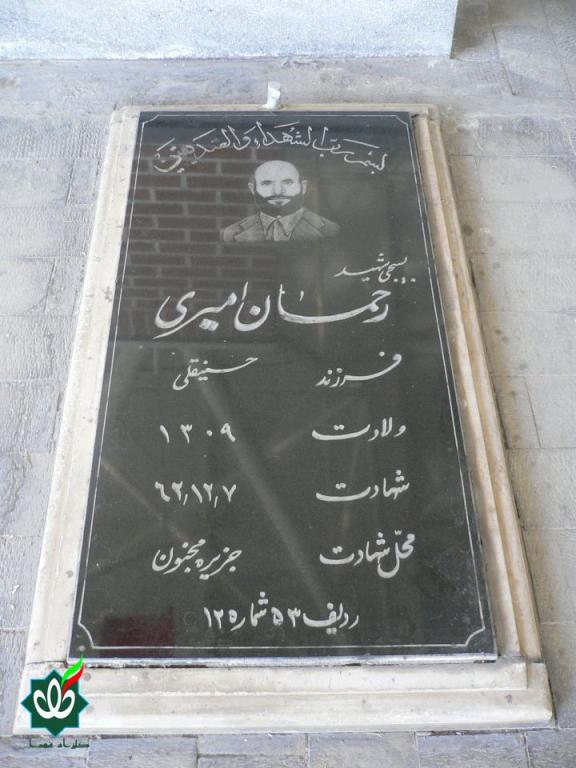 بسم رب الشهداء والصدیقین
بسیجی شهید
رحمان امیری
فرزند حسینقلی
ولادت ۱۳۰۹
شهادت ۶۲/۱۲/۷
محلّ شهادت جزیره مجنون
ردیف ۵۳ شماره ۱۲۵
گلزار شهدا